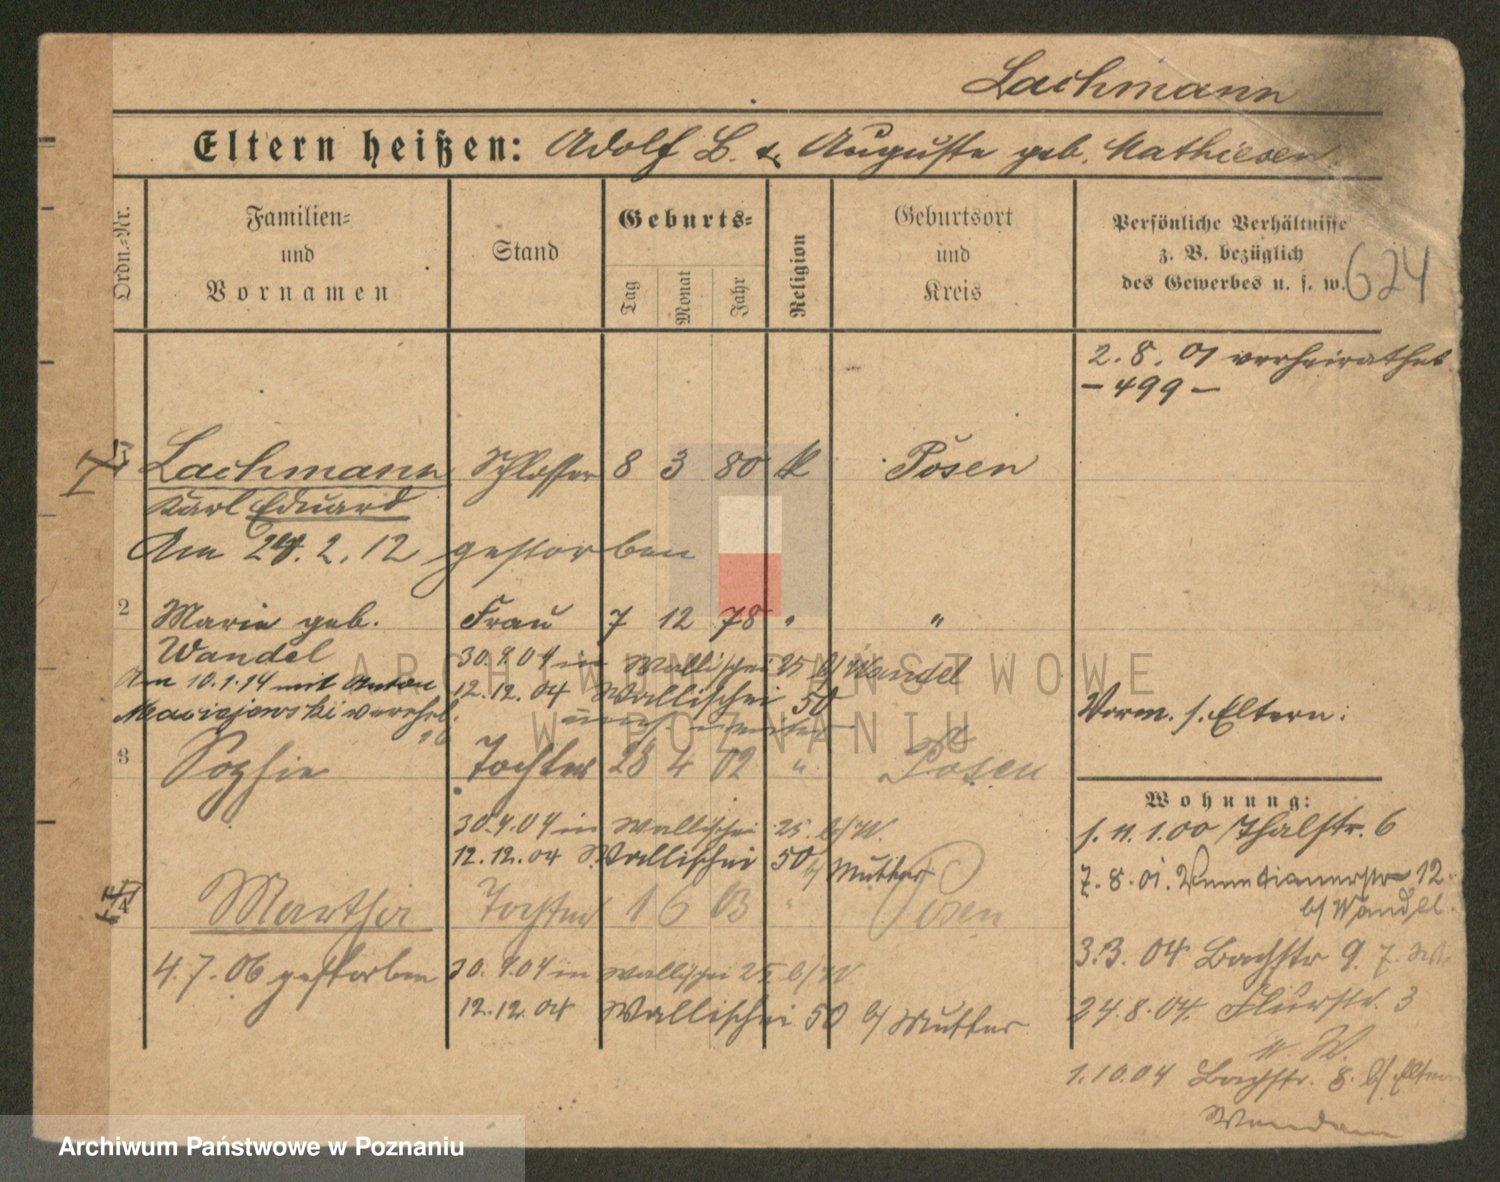 Lachmann
Eltern heißen: Adolf L. u. Auguste geb. Mathiesen
Ordn.-Nr.
Familien-
und
Vornamen
Stand
Geburts-
Tag
Monat
Jahr
Religion
Geburtsort
und
Kreis
Persönliche Verhältnisse
z. B. bezüglich
des Gewerbes u. s. w.
624
2. 8. 01 verheirathet
– 499 –
Lachmann Schlosser 8 3 80 k Posen
Karl Eduard
Am 24. 2. 12 gestorben
2 Marie geb. Frau 7 12 78 " "
Wandel 30.9.04 in Wallischei 25 b/ Wandel
Am 10.1.14 mit Anton 12.12.04 Wallischei 50
Maciejewski verehel.
Vorm. s. Eltern:
3 Sophie Tochter 28 4 02 " Posen
Wohnung:
30.9.04 in Wallischei 25. b/ W.
12.12.04 Wallischei 50 b/ Mutter
1.11.00 Thalstr. 6
7. 8. 01. Venetianerstr 12.
b/ Wandel.
4 Martha Tochter 1 6 03 " Posen
4. 7. 06 gestorben 30.9.04 in Wallischei 25 b/ W
12.12.04 Wallischei 50 b/ Mutter
3.3.04 Bachstr 9.
24.8.04. Flurstr. 3
b. W.
1.10.04 Bachstr. 8. b/ Eltern
ARCHIWUM PAŃSTWOWE
W POZNANIU
Archiwum Państwowe w Poznaniu